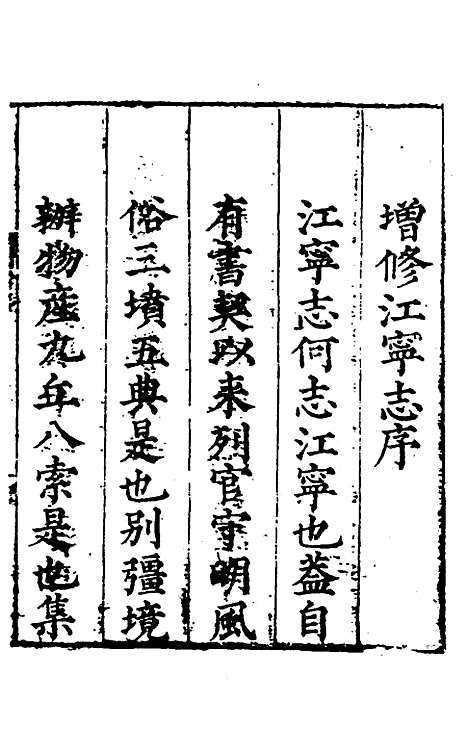 增修江寧志序
江寧志何志江寧也葢自
有書契以來列官守明風
俗三墳五典是也別疆境
辨物產九丘八索是也集